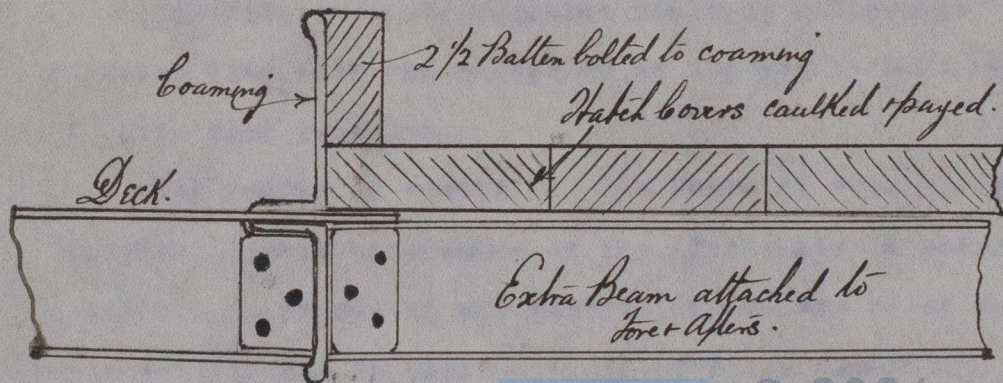 2 1/2 Batten bolted to coaming
Coaming
Hatch Covers caulked & payed.
Deck.
Extra Beam attached to
Fore & Afters.